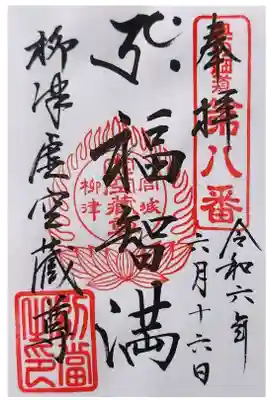 奉拝
第八番
令和六年
六月十六日
福智満
宮城
柳津
柳津虚空蔵尊